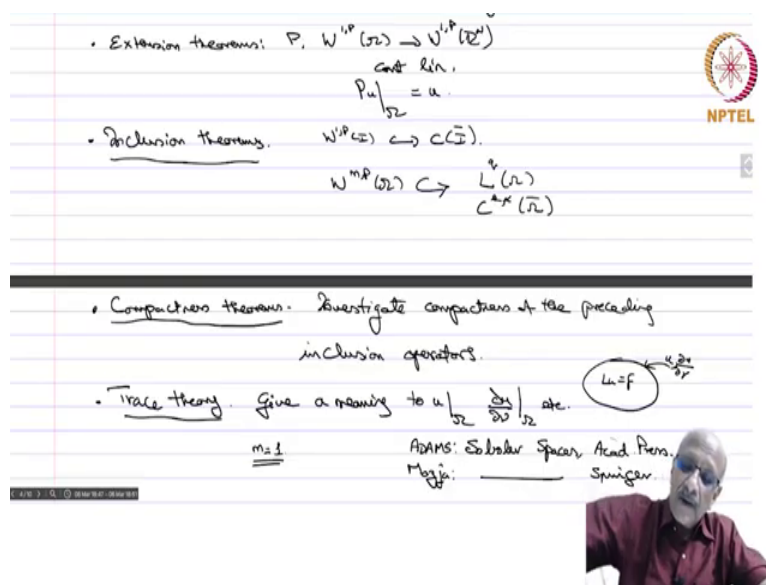 • Extension theorems: P, W^{1,p}(Ω) → W^{1,p}(ℝ^N)
cont lin.
Pu|_Ω = u.
NPTEL
• Inclusion theorems. W^{1,p}(I) ↪ C(Ī).
W^{m,p}(Ω) ↪ L^q(Ω)
C^{k,α}(Ω̄)
• Compactness theorems. Investigate compactness of the preceding
inclusion operators.
Lu=f u, ∂u/∂ν
• Trace theory. Give a meaning to u|_Ω ∂u/∂ν|_Ω etc.
m=1 ADAMS: Sobolev Spaces, Acad. Press.
Mazja: ——— Springer.
4/10